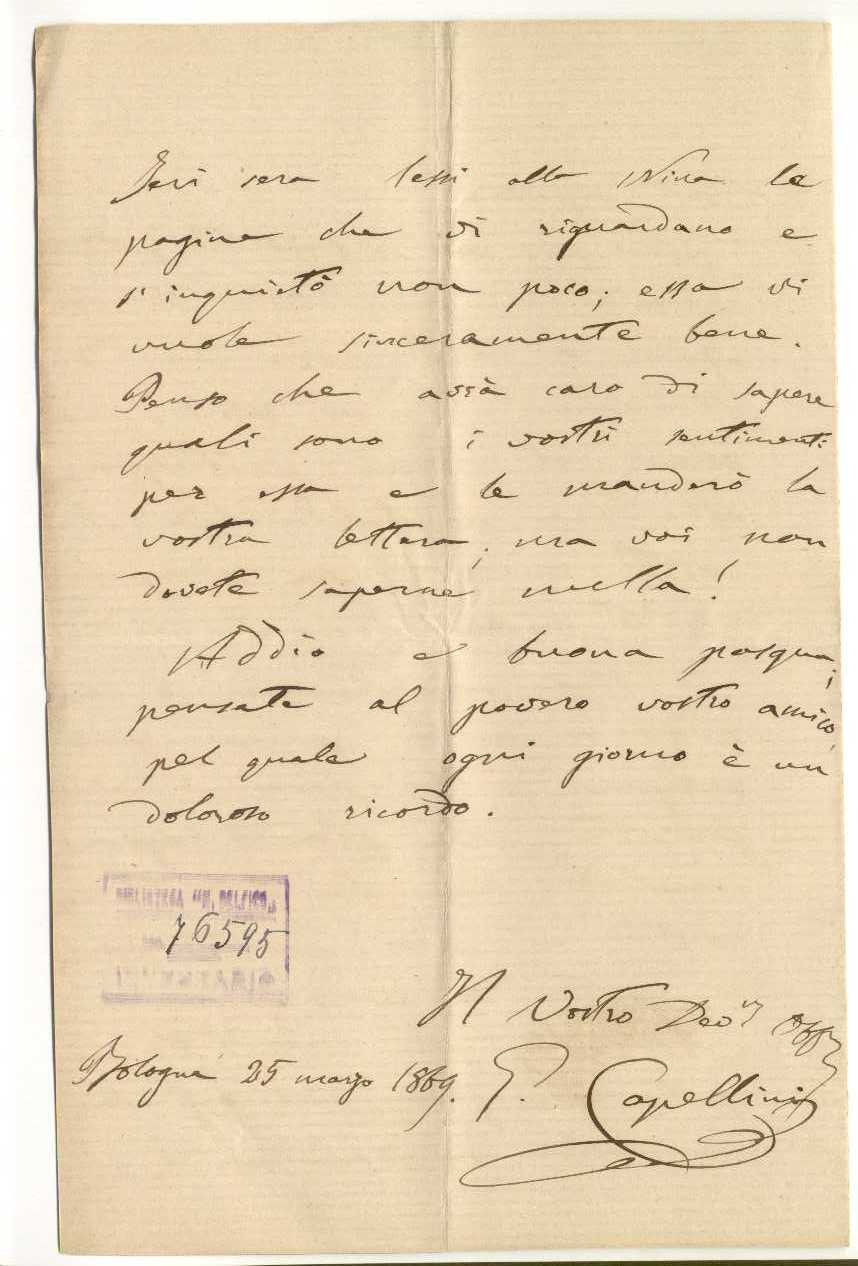 Jeri sera lessi alla Nina le
pagine che vi riguardano e
s'inquietò non poco; essa vi
vuole sinceramente bene.
Penso che avrà caro di sapere
quali sono i vostri sentimenti
per essa e le manderò la
vostra lettera; ma voi non
dovete saperne nulla!
Addio e buona pasqua;
pensate al povero vostro amico,
pel quale ogni giorno è un
doloroso ricordo.
BIBLIOTECA "M. DELFICO"
76595
INVENTARIO
Il Vostro Dev
Bologna 25 marzo 1869.
G. Capellini